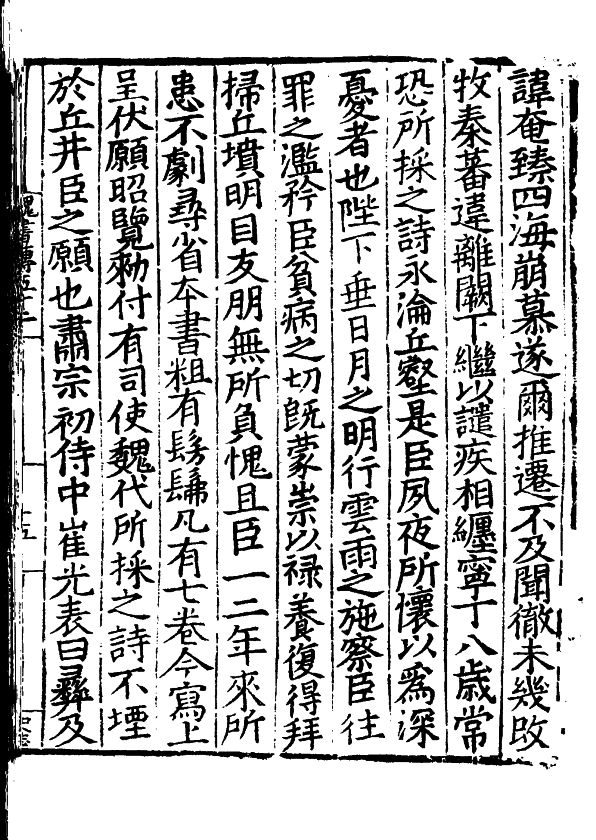 諱奄臻四海崩慕遂爾推遷不及聞徹未幾改
牧秦蕃違離闕下繼以譴疾相纏寧丁八歳常
恐所採之詩永淪丘壑是臣夙夜所懷以爲深
憂者也陛下垂日月之明行雲雨之施察臣往
罪之濫矜臣貧病之切旣蒙崇以禄養復得拜
掃丘墳明目友朋無所負愧且臣一二年來所
患不劇尋省本書粗有髣髴凡有七卷今寫上
呈伏願昭覽勑付有司使魏代所採之詩不堙
於丘井臣之願也肅宗初侍中崔光表曰彞及
魏書傳五十二
十五